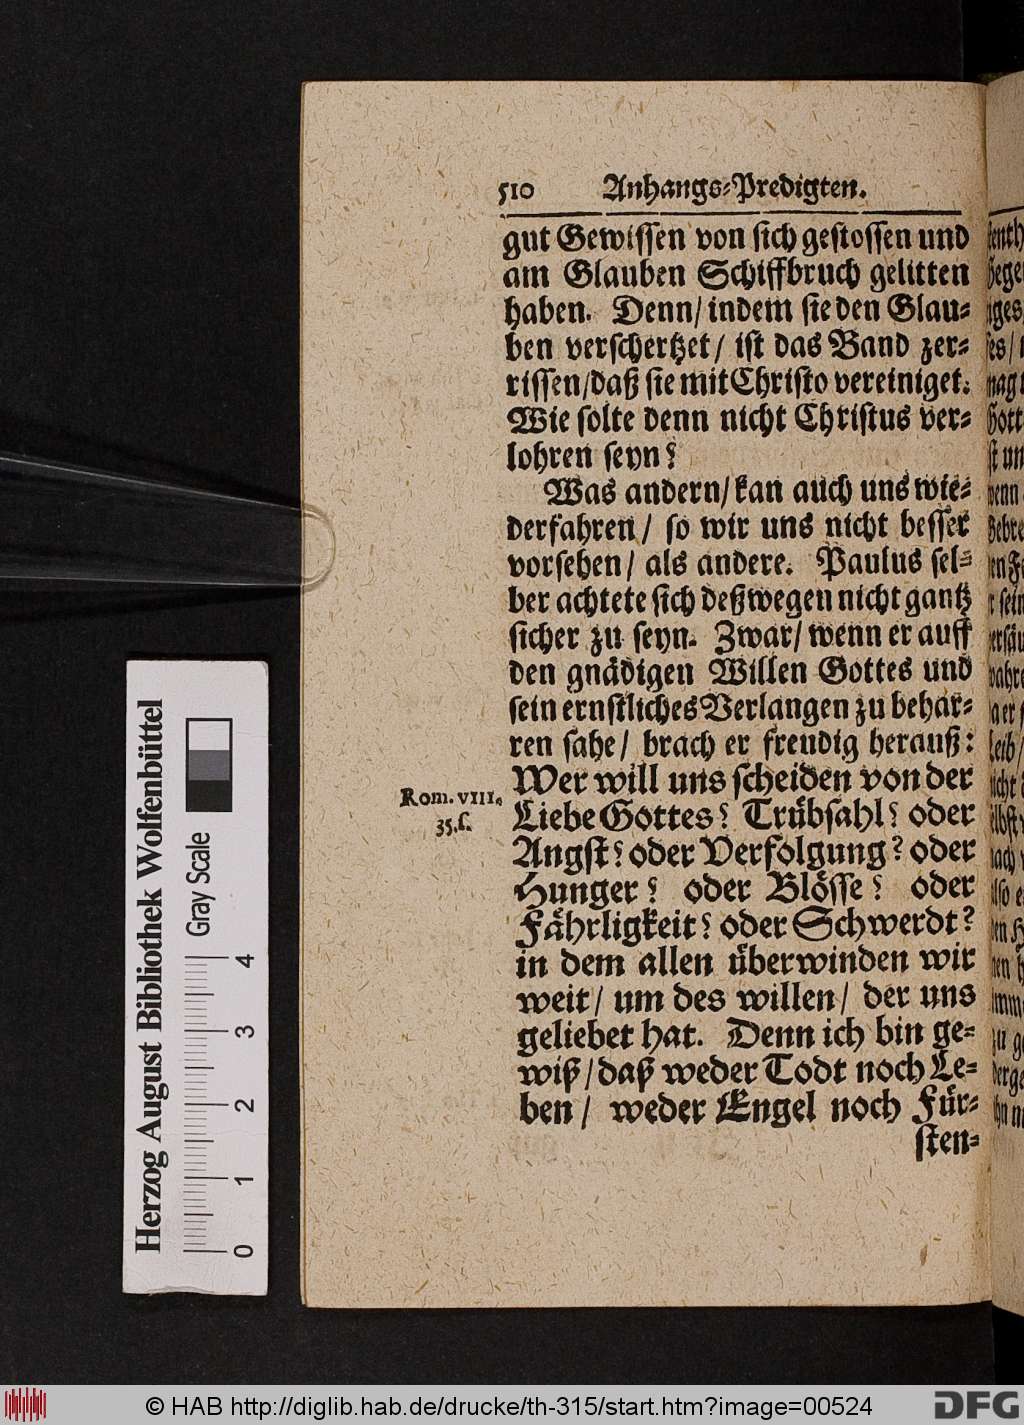 510 Anhangs⸗Predigten.
gut Gewissen von sich gestossen und
am Glauben Schiffbruch gelitten
haben. Denn/ indem sie den Glau⸗
ben verschertzet/ ist das Band zer⸗
rissen/ daß sie mit Christo vereiniget.
Wie solte denn nicht Christus ver⸗
lohren seyn?
Was andern/ kan auch uns wie⸗
derfahren/ so wir uns nicht besser
vorsehen/ als andere. Paulus sel⸗
ber achtete sich deßwegen nicht gantz
sicher zu seyn. Zwar/ wenn er auff
den gnädigen Willen Gottes und
sein ernstliches Verlangen zu behar⸗
ren sahe/ brach er freudig herauß:
Wer will uns scheiden von der
Rom. VIII.
35. s.
Liebe Gottes? Trübsahl? oder
Angst? oder Verfolgung? oder
Hunger? oder Blösse? oder
Fährligkeit? oder Schwerdt?
in dem allen überwinden wir
weit/ um des willen/ der uns
geliebet hat. Denn ich bin ge⸗
wiß/ daß weder Todt noch Le⸗
ben/ weder Engel noch Für⸗
sten⸗
Herzog August Bibliothek Wolfenbüttel
Gray Scale
0 1 2 3 4
© HAB http://diglib.hab.de/drucke/th-315/start.htm?image=00524
DFG